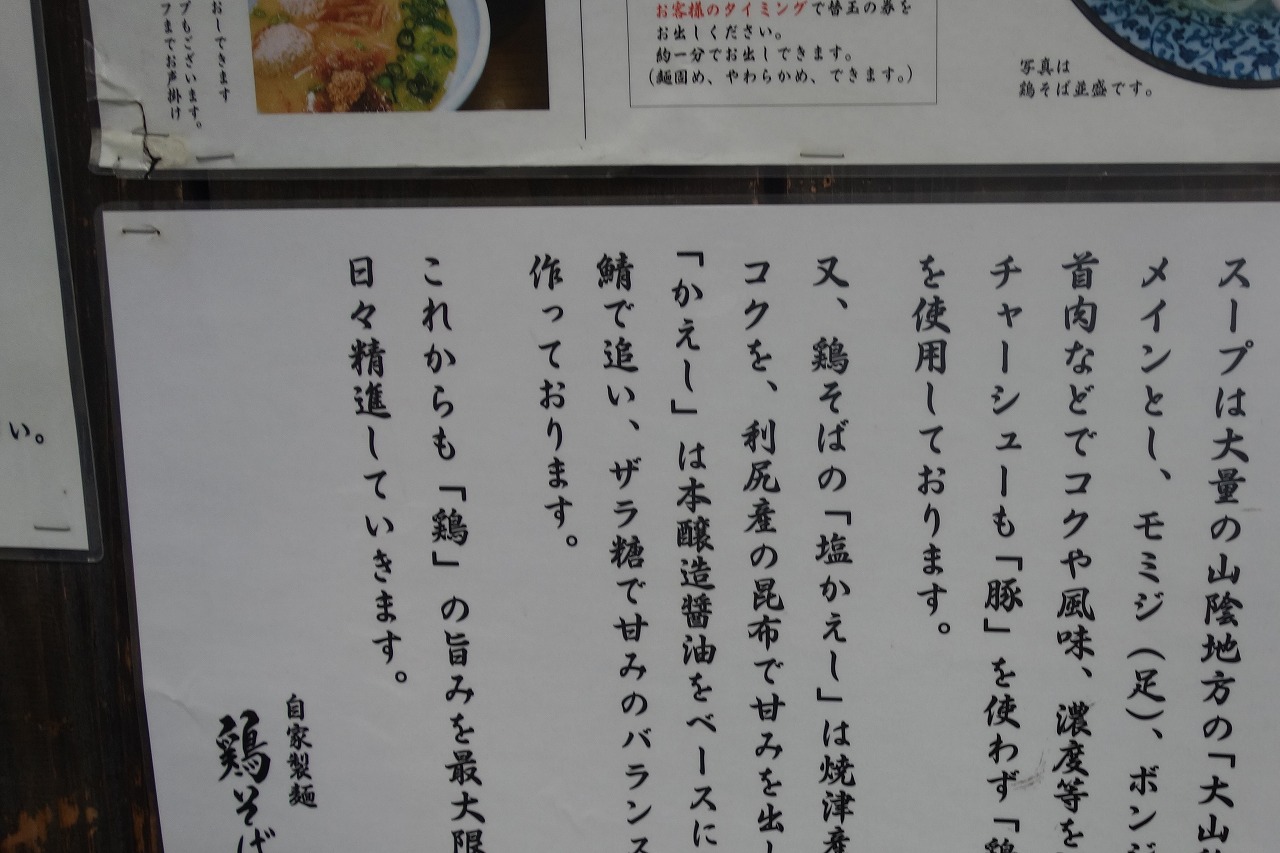 お客様のタイミングで替玉の券を
お出しください。
約一分でお出しできます。
(麺固め、やわらかめ、できます。)
写真は
鶏そば並盛です。
おしできます
プもございます。
フまでお声掛け
い。
スープは大量の山陰地方の「大山
メインとし、モミジ(足)、ボンジ
首肉などでコクや風味、濃度等を
チャーシューも「豚」を使わず「鶏
を使用しております。
又、鶏そばの「塩かえし」は焼津産
コクを、利尻産の昆布で甘みを出し
「かえし」は本醸造醤油をベースに
鯖で追い、ザラ糖で甘みのバランス
作っております。
これからも「鶏」の旨みを最大限
日々精進していきます。
自家製麺
鶏そば